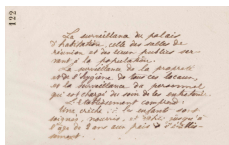 122
La surveillance du palais
d'habitation, celle des salles de
réunion et des lieux publics ser-
vant à la population.
La surveillance de la propreté
et de l'hygiène de tous ces locaux,
et la surveillance du personnel
qui est chargé du soin de les entretenir.
L'établissement comprend:
Une crèche: les enfants sont
soignés, nourris, et
l'âge de 2 ans aux frais de l'établis-
sement.